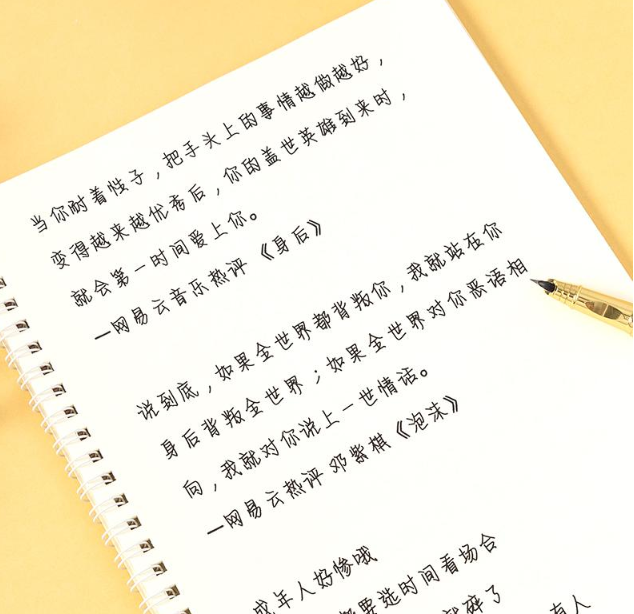 当你耐着性子，把手头上的事情越做越好，
变得越来越优秀后，你的盖世英雄到来时，
就会第一时间爱上你。
—网易云音乐热评《身后》
说到底，如果全世界都背叛你，我就站在你
身后背叛全世界；如果全世界对你恶语相
向，我就对你说上一世情话。
—网易云热评 邓紫棋《泡沫》
成年人好惨哦
要选时间看场合
碎了
有人